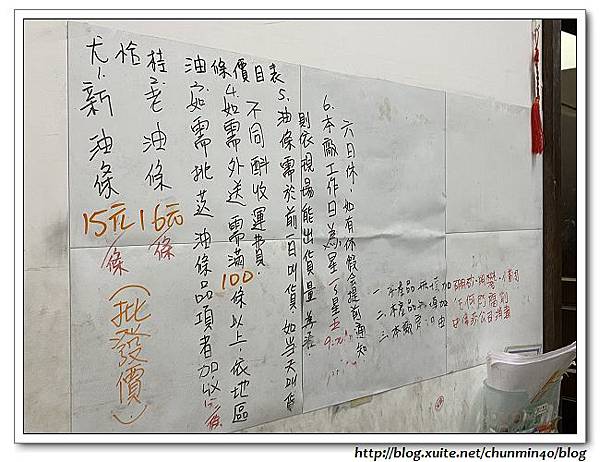 尤恰桂油條價目表
1.新油條 15元/條
2.老油條 16元/條
(批發價)
3.如需挑選油條品項者加收1元/條
4.如需外送需滿100條以上依地區
不同酌收運費.
5.油條需於前一日叫貨,如當天叫貨
則依現場能出貨量為准.
6.本廠工作日為星一~星五
六日休,如有休假會提前通知
一、本產品無添加硼砂.明礬
二、本產品無添加任何防腐劑
三、本廠是由
http://blog.xuite.net/chunmin40/blog